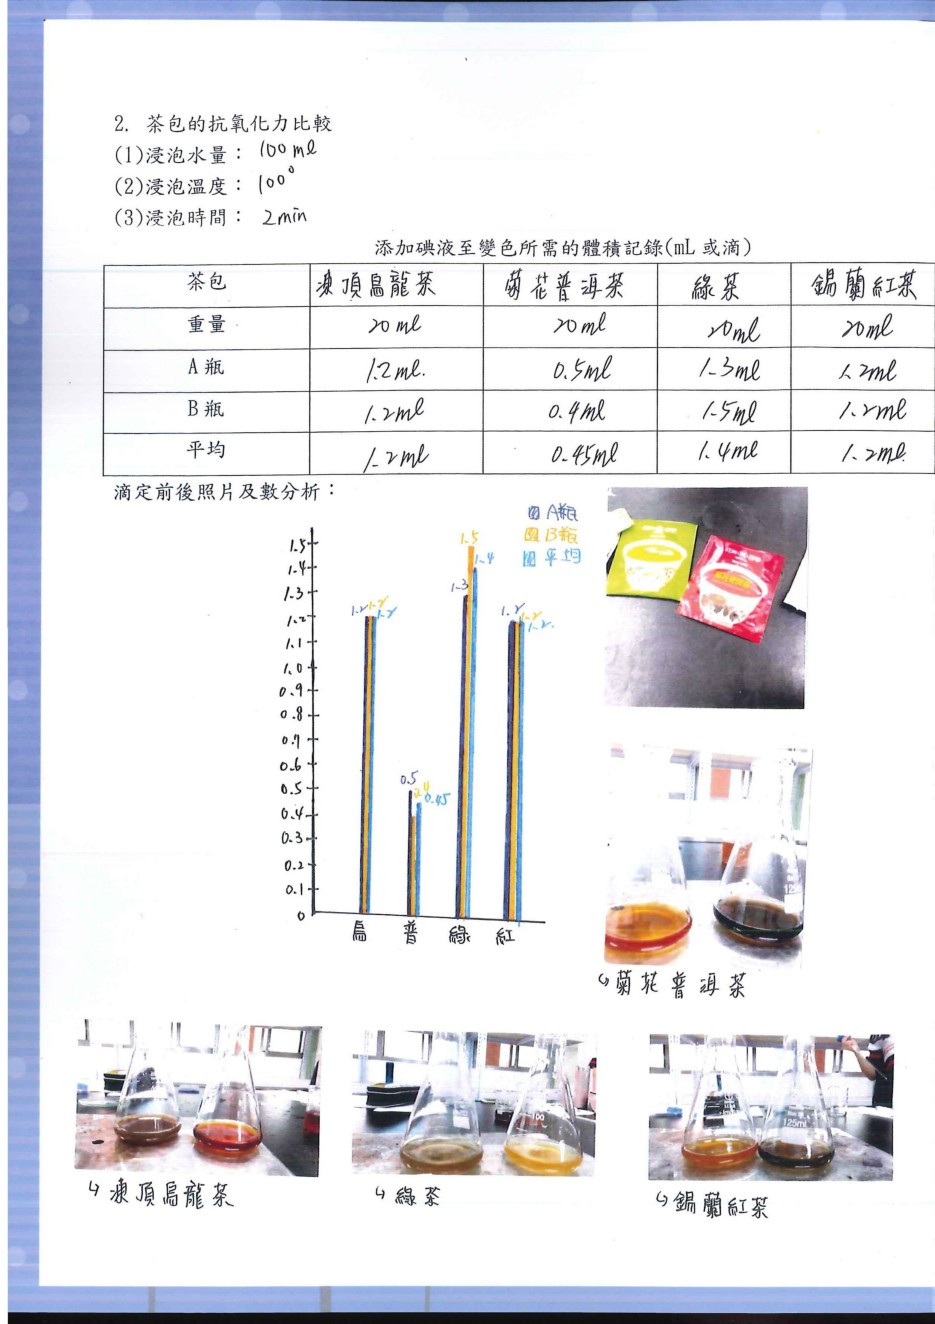 2. 茶包的抗氧化力比較
(1)浸泡水量： 100 ml
(2)浸泡溫度： 100°
(3)浸泡時間： 2min
添加碘液至變色所需的體積記錄(mL 或滴)
茶包 凍頂烏龍茶 菊花普洱茶 綠茶 錫蘭紅茶
重量 20ml 20ml 20ml 20ml
A 瓶 1.2ml. 0.5ml 1.3ml 1.2ml
B 瓶 1.2ml 0.4ml 1.5ml 1.2ml
平均 1.2ml 0.45ml 1.4ml 1.2ml.
滴定前後照片及數分析：
A瓶
B瓶
平均
1.5
1.4
1.3
1.2
1.1
1.0
0.9
0.8
0.7
0.6
0.5
0.4
0.3
0.2
0.1
0
1.2 1.2 1.2
0.5 0.4 0.45
1.3 1.5 1.4
1.2 1.2 1.2.
烏 普 綠 紅
↳菊花普洱茶
↳凍頂烏龍茶
↳綠茶
↳錫蘭紅茶
100
125ml